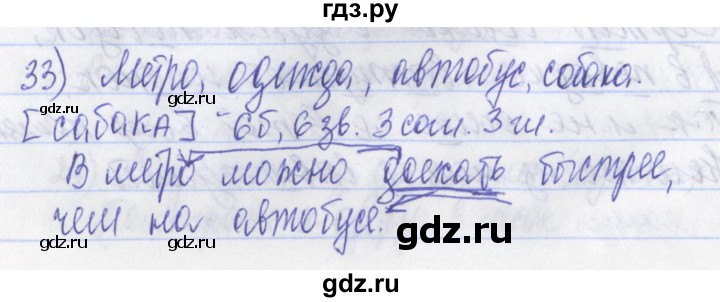 гдз.ру
33) Метро, одежда, автобус, собака.
[сабака] - 6б, 6зв. 3 согл. 3 гл.
В метро можно доехать быстрее,
чем на автобусе.
gdz.ru
gdz.ru
gdz.ru
gdz.ru
gdz.ru
gdz.ru
gdz.ru
gdz.ru